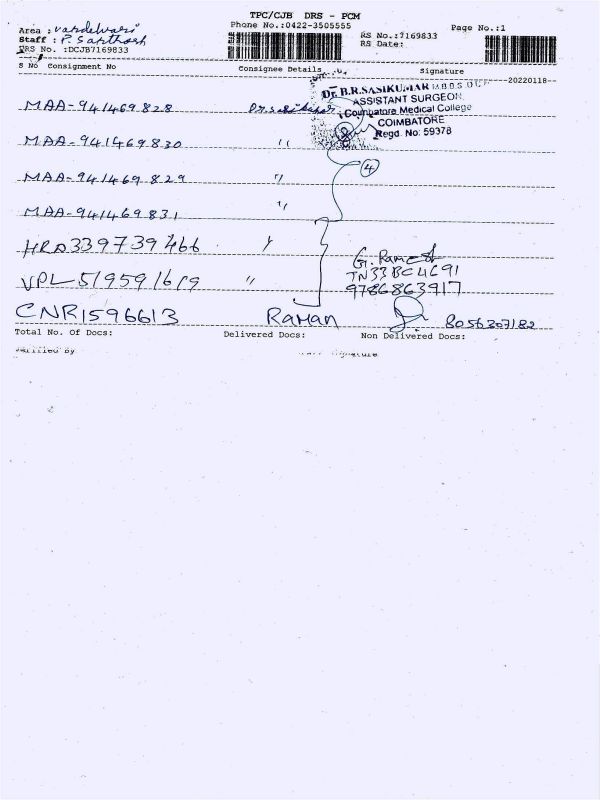 TPC/CJB DRS - PCM
Phone No.:0422-3505555
Page No.:1
Area :
Staff : P. Santhosh
DRS No. :DCJB7169833
RS No.:7169833
RS Date:
S No Consignment No Consignee Details Signature
20220118
Dr. B.R.SASIKUMAR M.B.B.S
ASSISTANT SURGEON
Coimbatore Medical College
COIMBATORE
Regd. No: 59378
MAA-941469828
MAA-941469830 "
4
MAA-941469829 "
MAA-941469831 "
HRD339739466 "
G. Ramesh
VPL519591619 "
TN33BC4691
9786863917
CNR1596613 RAMAN 8056307182
Total No. Of Docs: Delivered Docs: Non Delivered Docs:
Verified By Signature